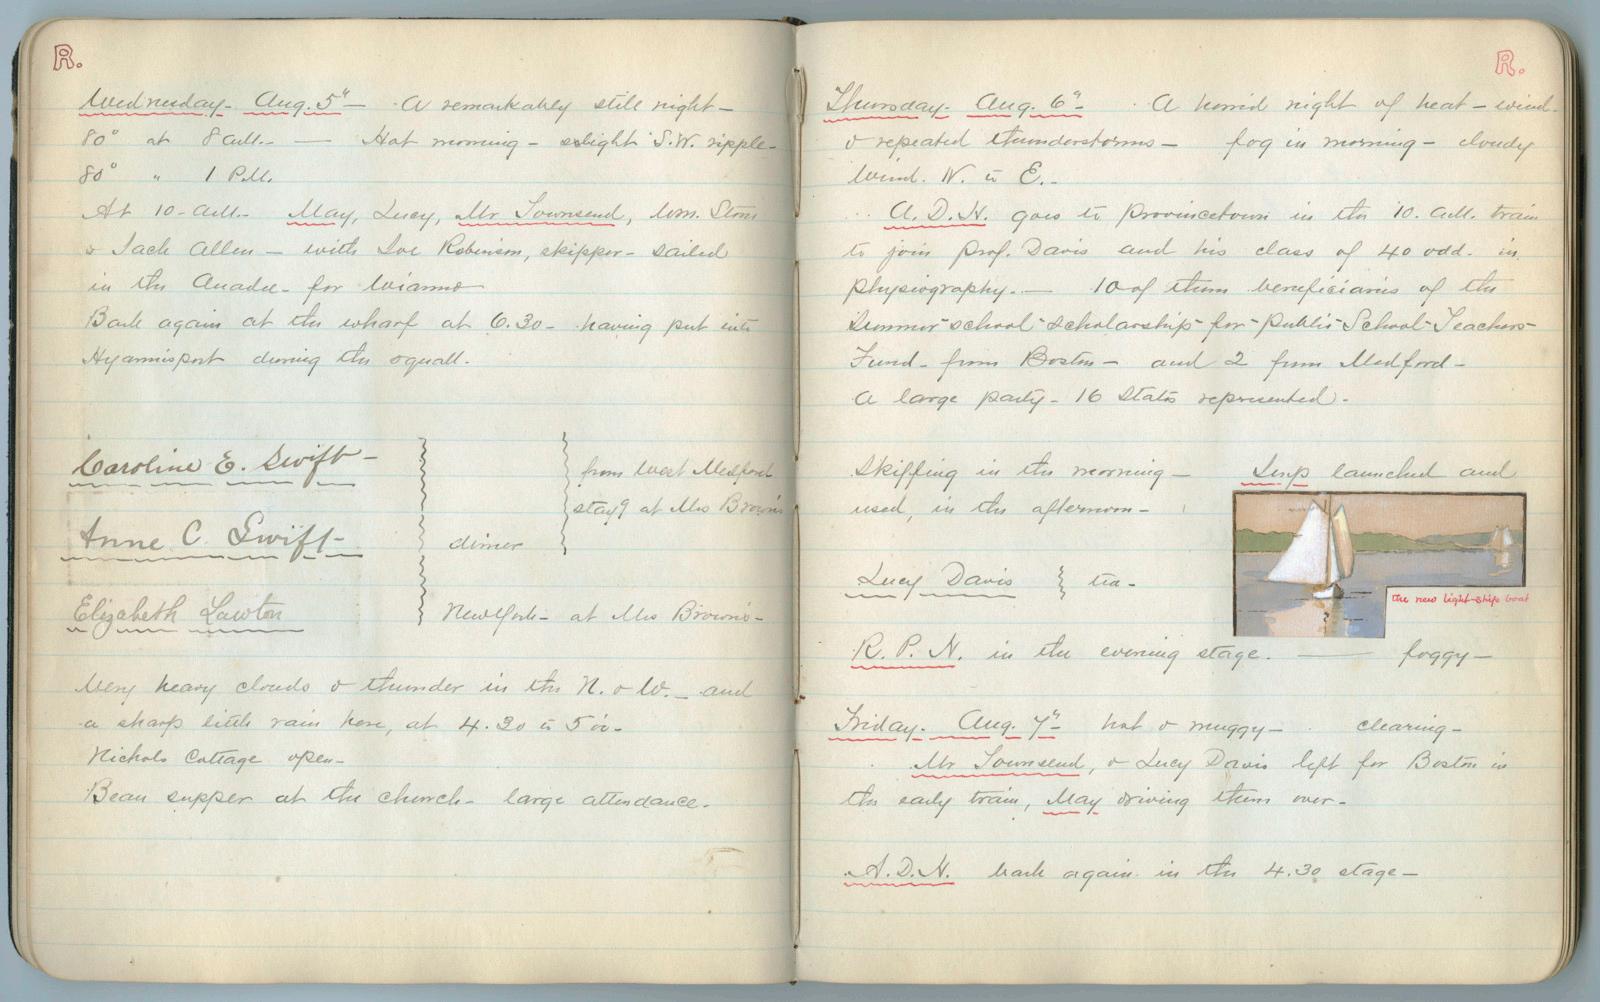 R.
Wednesday. Aug. 5" — A remarkably still night —
80° at 8 A.M. — Hot morning — slight S.W. ripple —
80° " 1 P.M.
At 10 A.M. May, Lucy, Mr Townsend, Wm. Stone
& Jack Allen — with Joe Robinson, skipper — sailed
in the for Wianno
Back again at the wharf at 6.30 — having put into
Hyannisport during the squall.
Caroline E. Swift —
from West Medford
stayg at Mrs Brown's
Anne C. Swift —
dinner
Elizabeth Lawton
New York — at Mrs Brown's —
Very heavy clouds & thunder in the N. & W. — and
a sharp little rain here, at 4.30 to 5 o'c —
Nichols Cottage open —
Bean supper at the church — large attendance.
R.
Thursday. Aug. 6" A horrid night of heat — wind
& repeated thunderstorms — fog in morning — cloudy
Wind. N. to E. —
A. D. H. goes to Provincetown in the 10. A.M. train
to join Prof. Davis and his class of 40 odd. in
Physiography. — 10 of them beneficiaries of the
Summer-school-scholarship-for-public-School-Teachers-
Fund — from Boston — and 2 from Medford —
A large party — 16 States represented.
Skiffing in the morning — launched and
used, in the afternoon —
the new light-ship boat
Lucy Davis tea —
R. P. N. in the evening stage. — foggy —
Friday. Aug. 7" hot & muggy — clearing —
Mr Townsend, & Lucy Davis left for Boston in
the early train, May driving them over —
A. D. H. back again in the 4.30 stage —